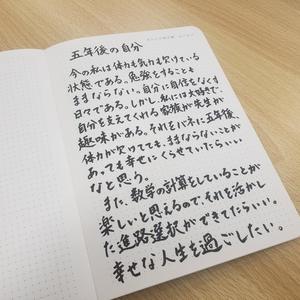 五年後の自分
今の私は体力も気力も欠けている
状態である。勉強をすることも
ままならない。自分に自信をなくす
日々である。しかし、私には大好きで、
自分を支えてくれる家族が先生が
趣味がある。それをバネに五年後、
体力が欠けてても、ままならないことが
あっても幸せにくらせていたらいい
なと思う。
また、数学の計算をしていることが
楽しいと思えるので、それを活かし
た進路選択ができてたらいい。
幸せな人生を過ごしたい。